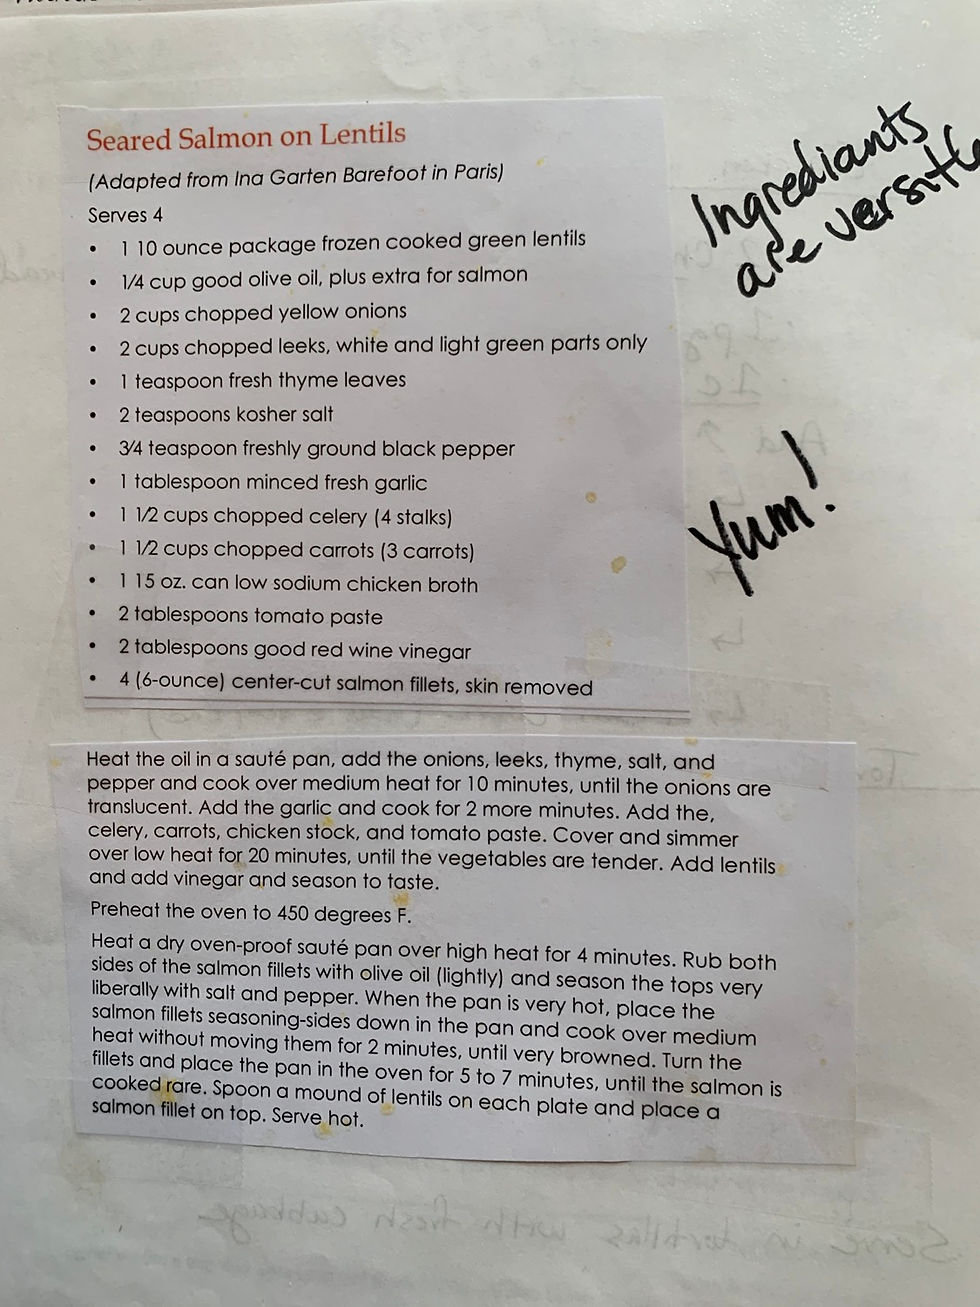 Seared Salmon on Lentils
(Adapted from Ina Garten Barefoot in Paris)
Serves 4
• 1 10 ounce package frozen cooked green lentils
• 1/4 cup good olive oil, plus extra for salmon
• 2 cups chopped yellow onions
• 2 cups chopped leeks, white and light green parts only
• 1 teaspoon fresh thyme leaves
• 2 teaspoons kosher salt
• 3/4 teaspoon freshly ground black pepper
• 1 tablespoon minced fresh garlic
• 1 1/2 cups chopped celery (4 stalks)
• 1 1/2 cups chopped carrots (3 carrots)
• 1 15 oz. can low sodium chicken broth
• 2 tablespoons tomato paste
• 2 tablespoons good red wine vinegar
• 4 (6-ounce) center-cut salmon fillets, skin removed
Ingrediants
are
Yum!
Heat the oil in a sauté pan, add the onions, leeks, thyme, salt, and
pepper and cook over medium heat for 10 minutes, until the onions are
translucent. Add the garlic and cook for 2 more minutes. Add the,
celery, carrots, chicken stock, and tomato paste. Cover and simmer
over low heat for 20 minutes, until the vegetables are tender. Add lentils
and add vinegar and season to taste.
Preheat the oven to 450 degrees F.
Heat a dry oven-proof sauté pan over high heat for 4 minutes. Rub both
sides of the salmon fillets with olive oil (lightly) and season the tops very
liberally with salt and pepper. When the pan is very hot, place the
salmon fillets seasoning-sides down in the pan and cook over medium
heat without moving them for 2 minutes, until very browned. Turn the
fillets and place the pan in the oven for 5 to 7 minutes, until the salmon is
cooked rare. Spoon a mound of lentils on each plate and place a
salmon fillet on top. Serve hot.
Serve in tortillas with fresh cabbage